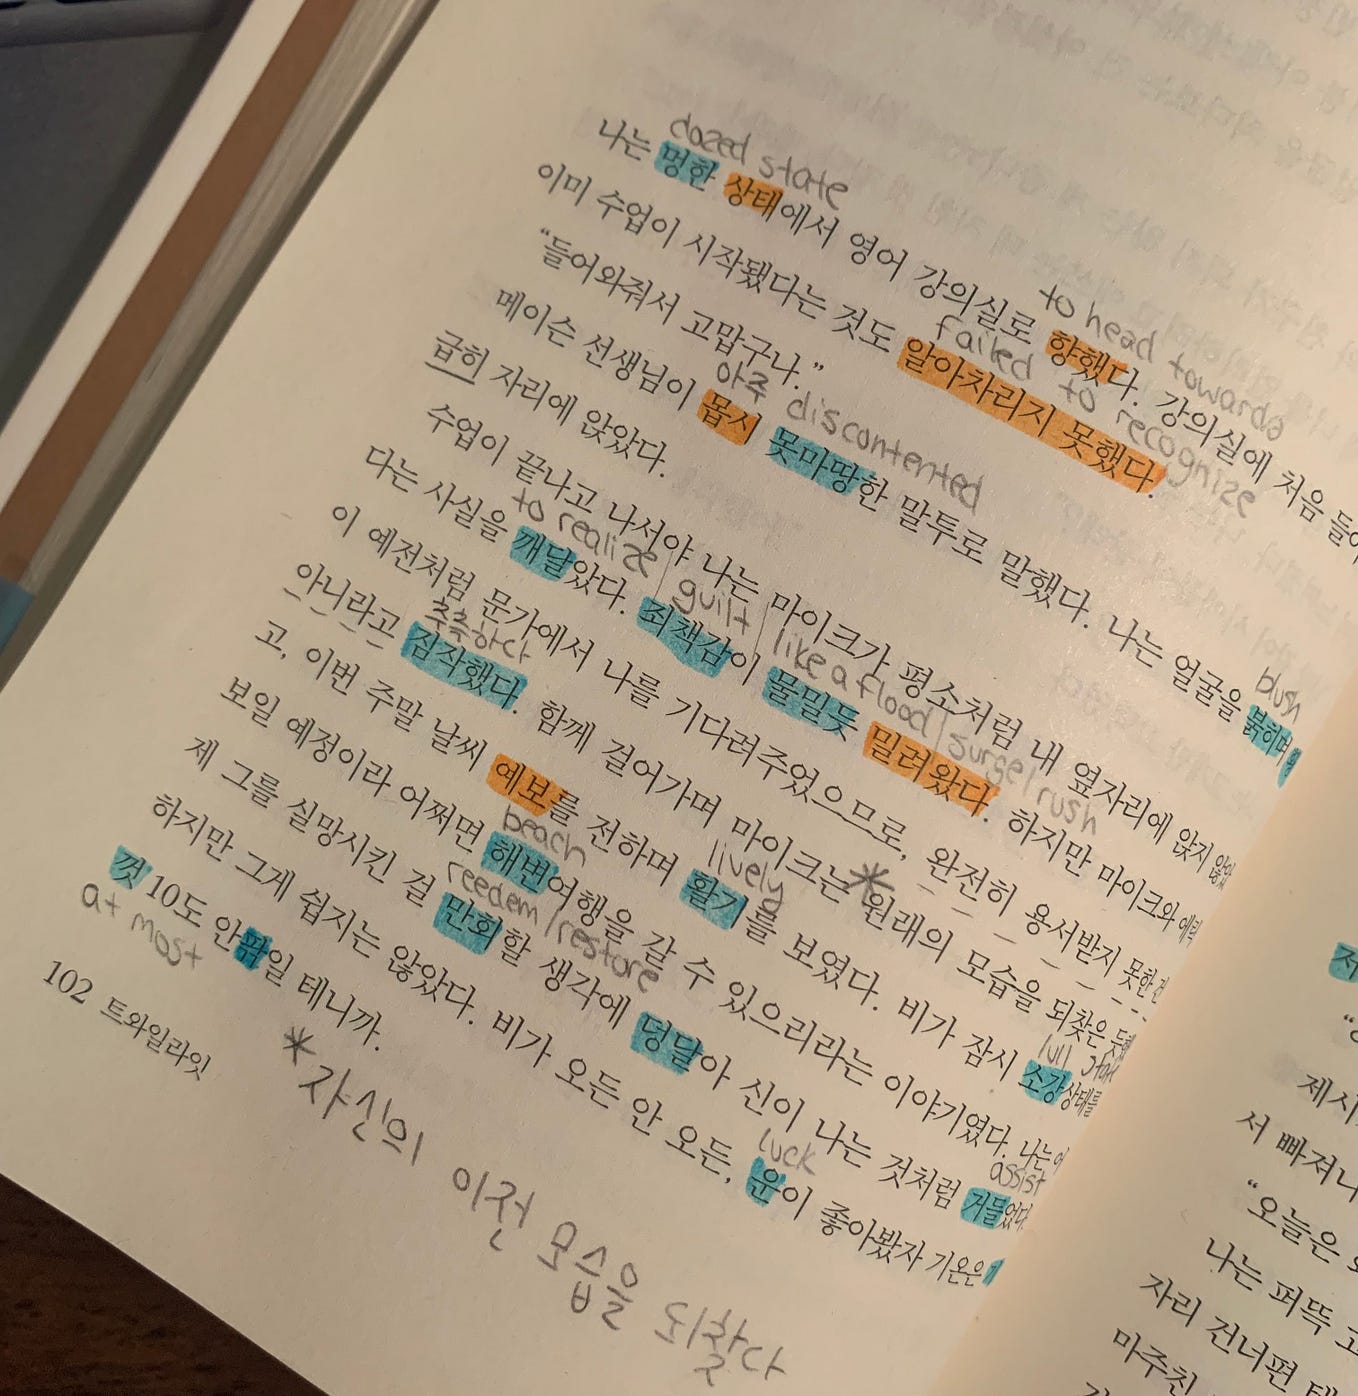 dazed state
나는 멍한 상태에서 영어 강의실로 향했다. 강의실에 처음
to head towards
failed to recognize
이미 수업이 시작됐다는 것도 알아차리지 못했다.
“들어와줘서 고맙구나.”
아주 discontented
메이슨 선생님이 몹시 못마땅한 말투로 말했다. 나는 얼굴을 붉히며
blush
급히 자리에 앉았다.
수업이 끝나고 나서야 나는 마이크가 평소처럼 내 옆자리에 앉지 않았
to realize | guilt | like a flood | surge/rush
다는 사실을 깨달았다. 죄책감이 물밀듯 밀려왔다. 하지만 마이크와
이 예전처럼 문가에서 나를 기다려주었으므로, 완전히 용서받지 못한 건
추측하다
아니라고 짐작했다. 함께 걸어가며 마이크는 * 원래의 모습을 되찾은 듯했
lively
고, 이번 주말 날씨 예보를 전하며 활기를 보였다. 비가 잠시 소강상태를
lull state
beach
보일 예정이라 어쩌면 해변여행을 갈 수 있으리라는 이야기였다. 나는
reedem/restore
assist
제 그를 실망시킨 걸 만회할 생각에 덩달아 신이 나는 것처럼 거들었다.
luck
하지만 그게 쉽지는 않았다. 비가 오든 안 오든, 운이 좋아봤자 기온은 기
껏 10도 안팎일 테니까.
at most
102 트와일라잇
* 자신의 이전 모습을 되찾다
제시
서 빠져나
“오늘은
나는 퍼뜩
자리 건너편
마주친